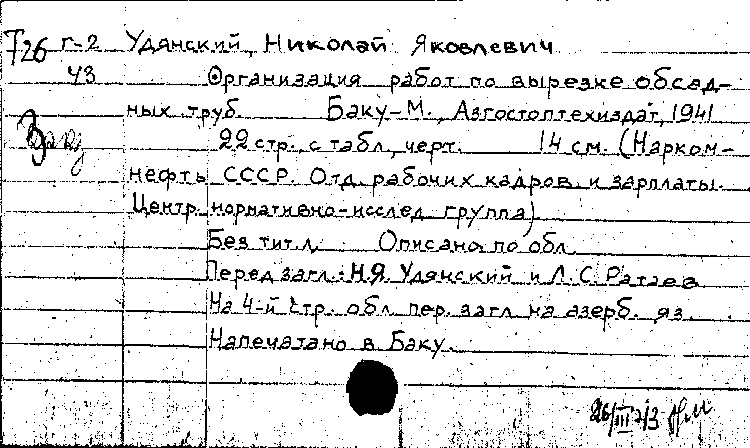 Т26 г-2 Удянский, Николай Яковлевич
43 Организация работ по вырезке обсад-
ных труб. Баку-М., Азгостоптехиздат, 1941
22 стр., с табл., черт. 14 см. (Нарком-
нефть СССР. Отд. рабочих кадров и зарплаты.
Центр. нормативно-исслед. группа)
Без тит. л. Описано по обл.
Перед загл.: Н.Я. Удянский и Л.С. Ратаев
На 4-й стр. обл. пер. загл. на азерб. яз.
Напечатано в Баку.